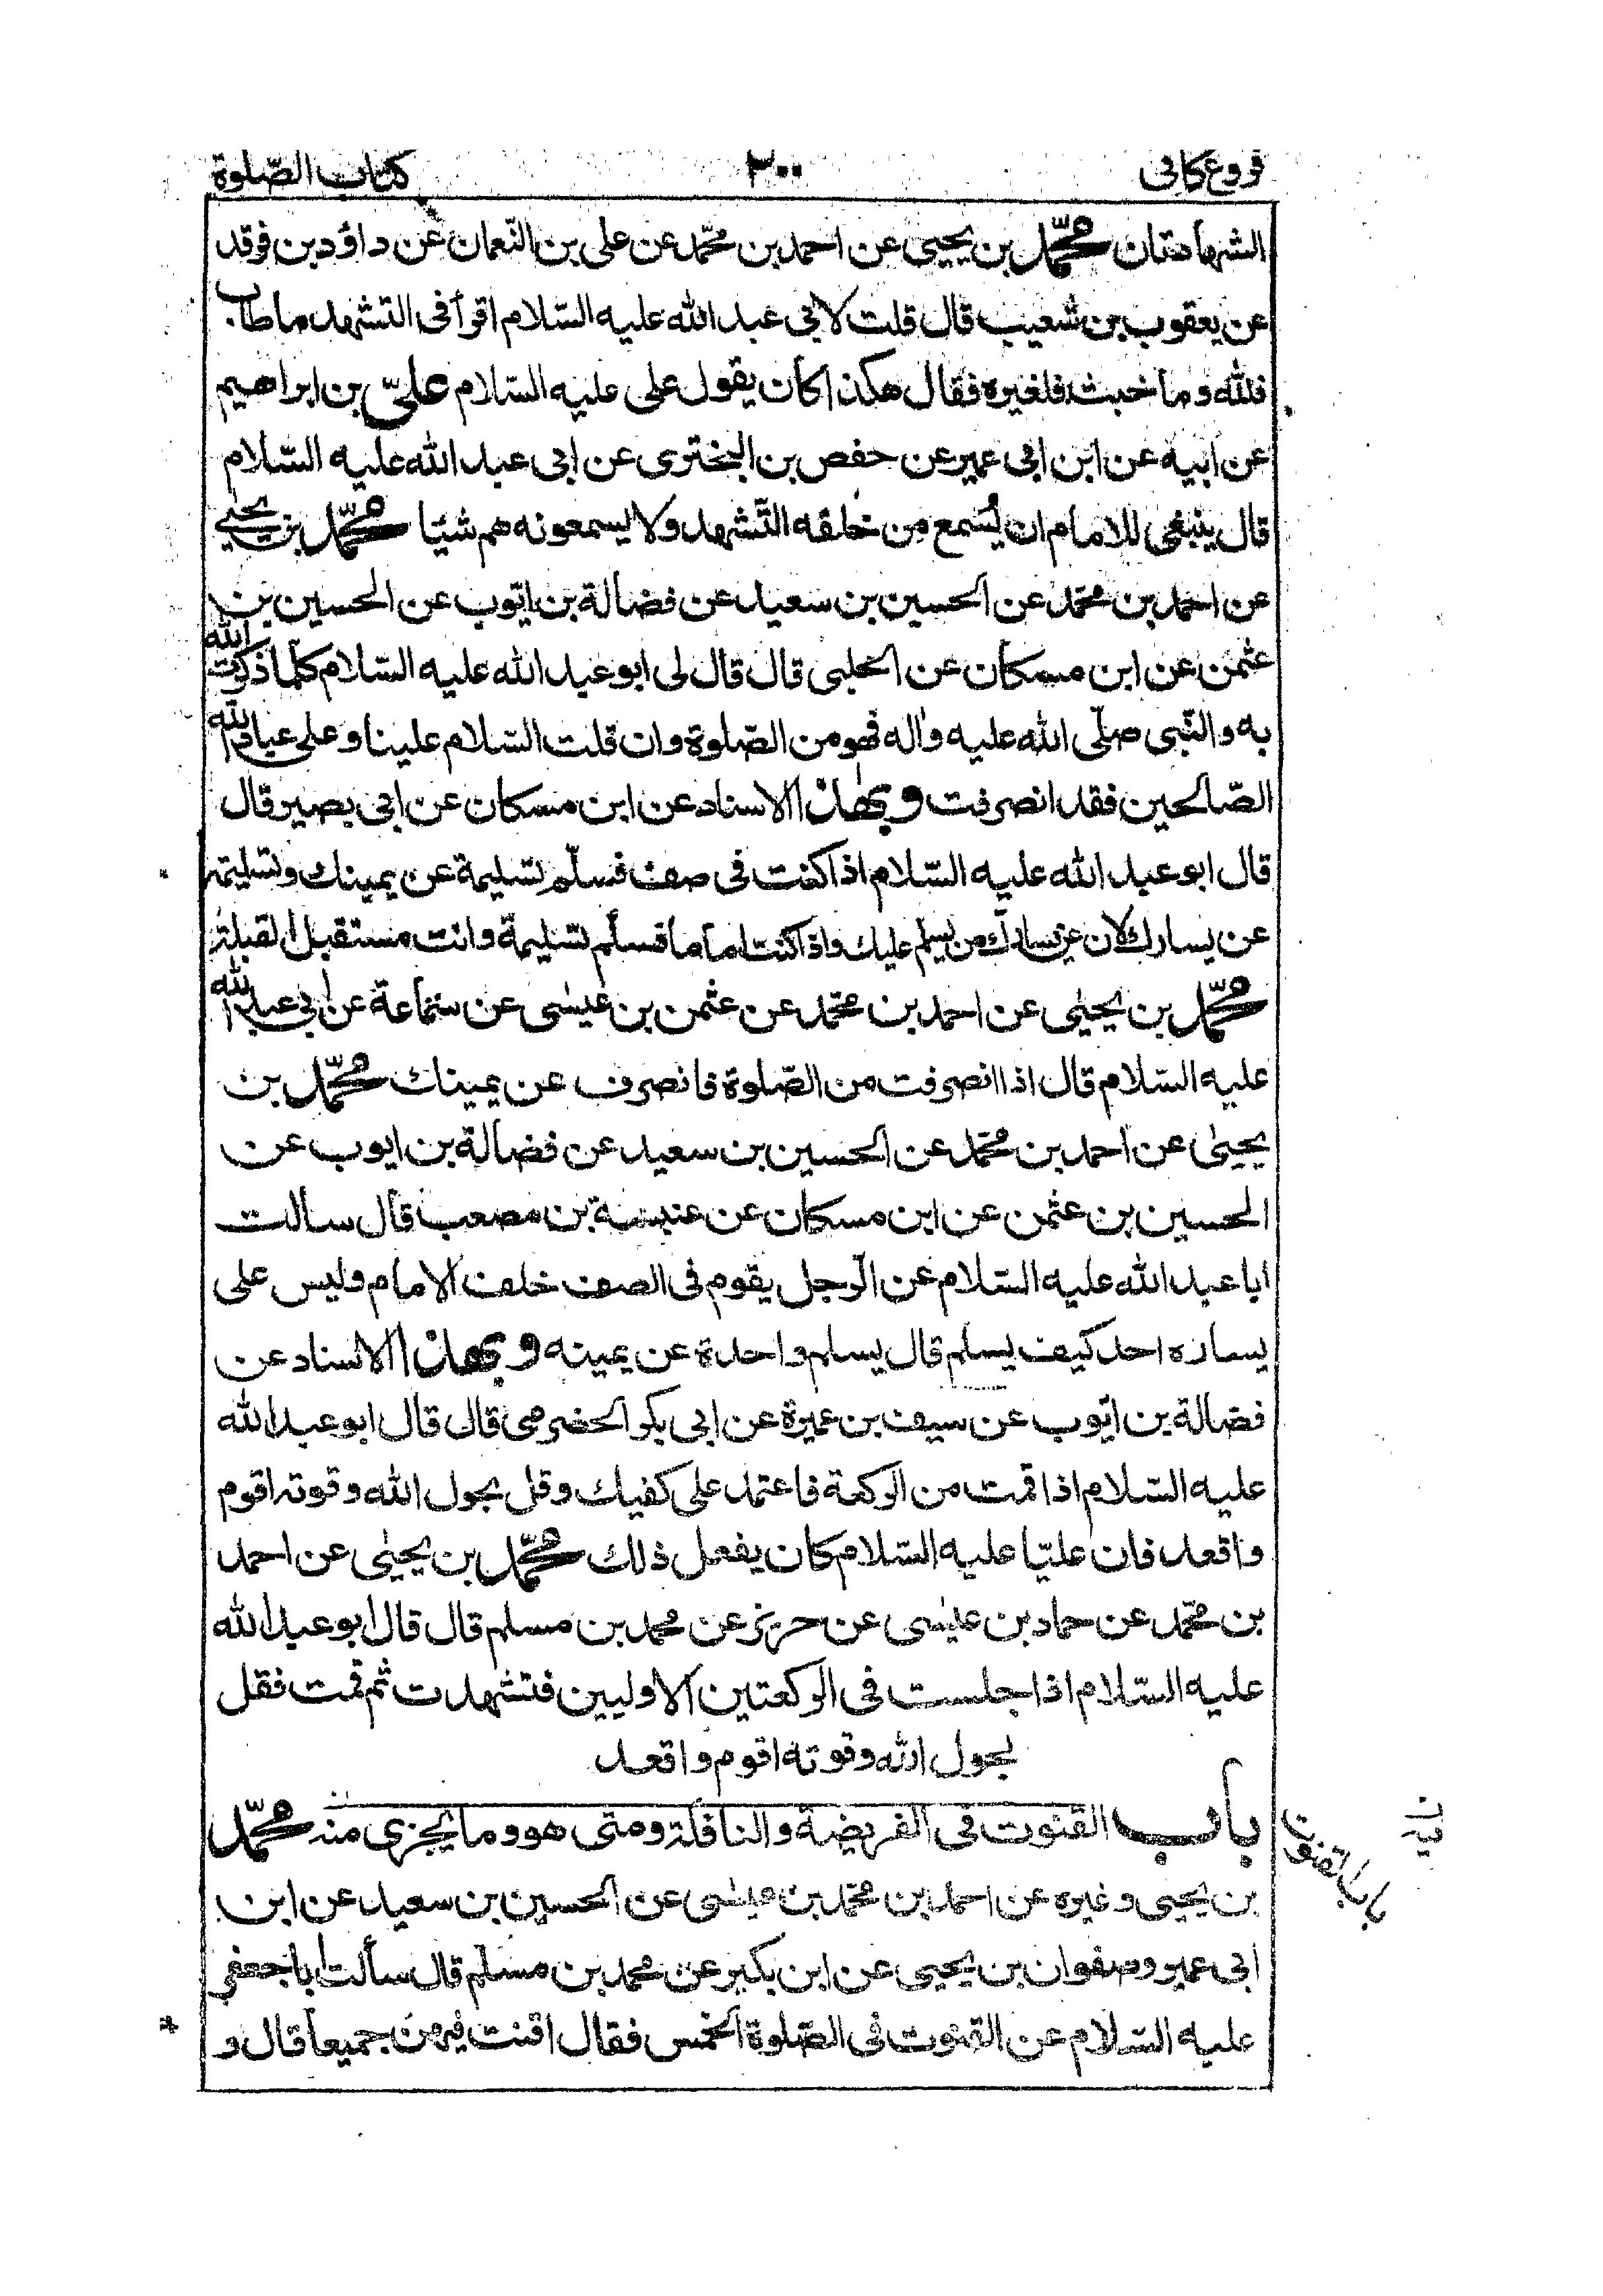 فروع كافى ٣٠٠ كتاب الصّلوة
الشهادتان محمّد بن يحيى عن احمد بن محمّد عن على بن النّعمان عن داؤد بن فرقد
عن يعقوب بن شعيب قال قلت لابى عبد الله عليه السّلام اقرأ فى التشهد ما طاب
فلله وما خبث فلغيره فقال هكذا كان يقول على عليه السّلام علىّ بن ابراهيم
عن ابيه عن ابن ابى عمير عن حفص بن البخترى عن ابى عبد الله عليه السّلام
قال ينبغى للامام ان يُسمع من خلفه التّشهد ولا يسمعونه هم شيئا محمّد بن يحيى
عن احمد بن محمّد عن الحسين بن سعيد عن فضالة بن ايّوب عن الحسين بن
عثمن عن ابن مسكان عن الحلبى قال قال لى ابو عبد الله عليه السّلام كلّما ذكرت الله
به والنّبى صلّى الله عليه واله فهو من الصّلوة وان قلت السّلام علينا وعلى عباد الله
الصّالحين فقد انصرفت وبهذا الاسناد عن ابن مسكان عن ابى بصير قال
قال ابو عبد الله عليه السّلام اذا كنت فى صف فسلّم تسليمة عن يمينك وتسليمة
عن يسارك لان عن يسارك من يسلم عليك واذا كنت اماما فسلّم تسليمة وانت مستقبل القبلة
محمّد بن يحيٰى عن احمد بن محمّد عن عثمن بن عيسٰى عن سماعة عن ابى عبد الله
عليه السّلام قال اذا انصرفت من الصّلوة فانصرف عن يمينك محمّد بن
يحيٰى عن احمد بن محمّد عن الحسين بن سعيد عن فضالة بن ايوب عن
الحسين بن عثمن عن ابن مسكان عن عنبسة بن مصعب قال سالت
ابا عبد الله عليه السّلام عن الرّجل يقوم فى الصف خلف الامام وليس على
يساره احد كيف يسلّم قال يسلم واحدة عن يمينه وبهذا الاسناد عن
فضالة بن ايّوب عن سيف بن عميرة عن ابى بكر الحضرمى قال قال ابو عبد الله
عليه السّلام اذا قمت من الركعة فاعتمد على كفيك وقل بحول الله وقوته اقوم
واقعد فان عليّا عليه السّلام كان يفعل ذلك محمّد بن يحيٰى عن احمد
بن محمّد عن حماد بن عيسٰى عن حريز عن محمد بن مسلم قال قال ابو عبد الله
عليه السّلام اذا جلست فى الركعتين الاوليين فتشهدت ثم قمت فقل
بحول الله وقوته اقوم واقعد
باب القنوت فى الفريضة والنافلة ومتى هو وما يجزى منه محمّد
باب القنوت
بن يحيى وغيره عن احمد بن محمّد بن عيسٰى عن الحسين بن سعيد عن ابن
ابى عمير وصفوان بن يحيى عن ابن بكير عن محمد بن مسلم قال سألت ابا جعفر
عليه السّلام عن القنوت فى الصّلوة الخمس فقال اقنت فيهن جميعا قال و